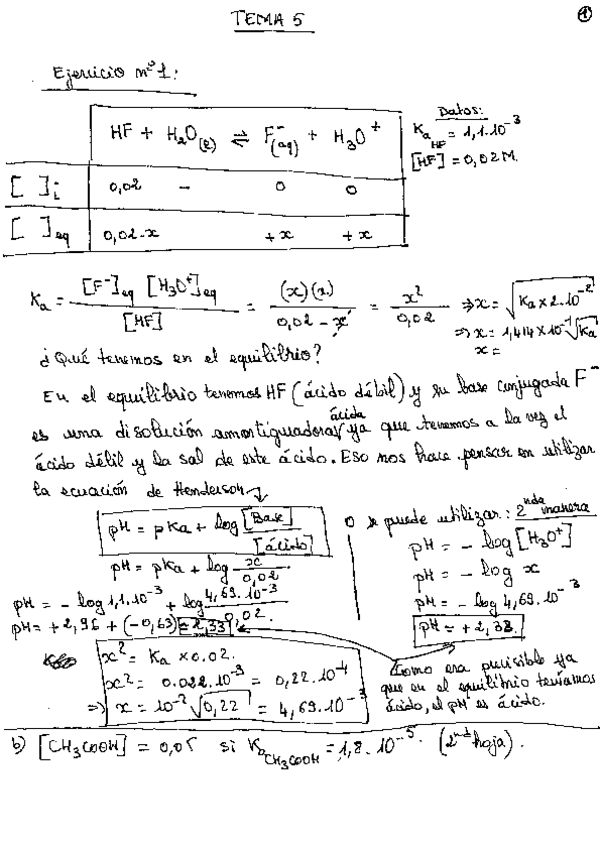 TEMA 5
1
Ejercicio nº1:
HF + H2O(l) ⇌ F-(aq) + H3O+
Datos:
KaHF = 1,1·10^-3
[HF] = 0,02M.
[ ]i 0,02 - 0 0
[ ]eq 0,02-x +x +x
Ka = [F-]eq [H3O+]eq / [HF] = (x)(x) / 0,02 - x = x^2 / 0,02 ⇒ x = √Ka x 2.10^-2
⇒ x = 1,414 x 10^-1 √Ka
x =
¿Qué tenemos en el equilibrio?
En el equilibrio tenemos HF (ácido débil) y su base conjugada F-
es una disolución amortiguadora ácida ya que tenemos a la vez el
ácido débil y la sal de este ácido. Eso nos hace pensar en utilizar
la ecuación de Henderson
pH = pKa + log [Base] / [ácido]
pH = pKa + log x / 0,02
pH = - log 1,1.10^-3 + log 4,69.10^-3 / 0,02.
pH = + 2,96 + (-0,63) = 2,33.
O se puede utilizar: 2nda manera
pH = - log [H3O+]
pH = - log x
pH = - log 4,69.10^-3
pH = + 2,33.
x^2 = Ka x 0.02.
x^2 = 0.022.10^-3 = 0,22.10^-4
⇒ x = 10^-2 √0,22 = 4,69.10^-3
Como era previsible ya
que en el equilibrio teníamos
ácido, el pH es ácido.
b) [CH3COOH] = 0,05 si KaCH3COOH = 1,8.10^-5. (2nd hoja).